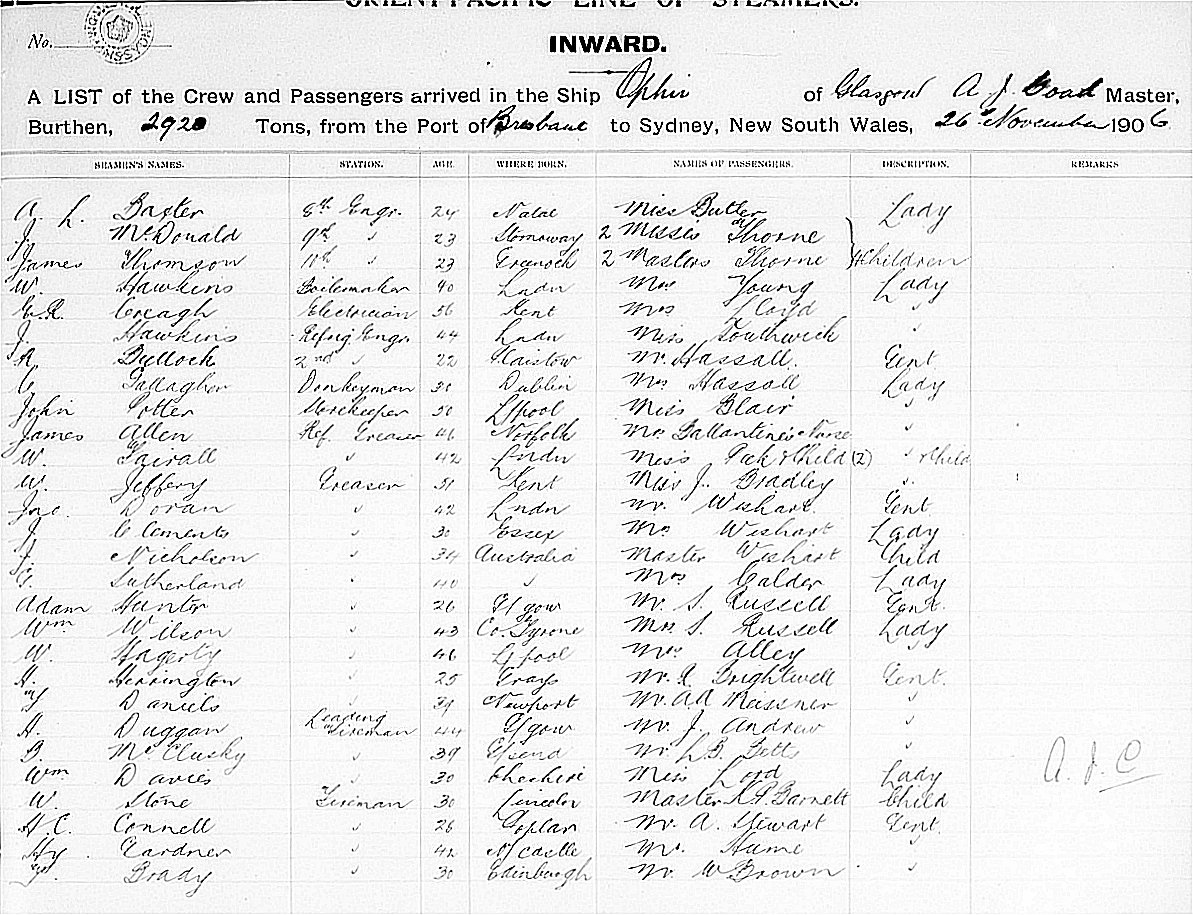 ORIENT-PACIFIC LINE OF STEAMERS.
No.
INWARD.
A LIST of the Crew and Passengers arrived in the Ship Ophir of Glasgow A. J. Coad Master,
Burthen, 2920 Tons, from the Port of Brisbane to Sydney, New South Wales, 26 November 1906
SEAMEN'S NAMES. STATION. AGE. WHERE BORN. NAMES OF PASSENGERS. DESCRIPTION. REMARKS
A. L. Baxter 8th Engr. 24 Natal Miss Butler Lady
J. McDonald 9th " 23 Stornoway 2 Misses Thorne
James Thomson 10th " 23 Greenock 2 Masters Thorne 4 Children
W. Hawkins Boilermaker 40 Lndn Mrs Young Lady
G.R. Creagh Electrician 56 Kent Mrs Lloyd "
J. Hawkins Refrig Engr. 44 Lndn Miss Southwick "
R. Bullock 2nd " 22 Plaistow Mr. Hassall. Gent
C. Gallagher Donkeyman 51 Dublin Mrs Hassall Lady
John Potter Storekeeper 50 L/pool Miss Blair "
James Allen Ref. Greaser 46 Norfolk Mrs Ballantine's Nurse "
W. Fairall " 42 Lndn Miss Peck & Child (2) " & Child
W. Jeffery Greaser 51 Kent Miss J. Bradley "
Jno. Doran " 42 Lndn Mr. Wishart. Gent.
J. Clements " 30 Essex Mrs Wishart Lady
J. Nicholson " 34 Australia Master Wishart Child
Sutherland " 40 " Mrs Calder Lady
Adam Hunter " 26 G/gow Mr. S. Russell Gent.
Wm Wilson " 43 Co. Tyrone Mrs S. Russell Lady
W. Hagerty " 46 L/pool Mrs Alley
H. Herrington " 25 Grays Mr. R. Brightwell Gent.
Daniels " 39 Newport Mr. A.A. Meissner "
H. Duggan Leading Fireman 44 G/gow Mr. J. Andrew "
B. McClusky " 39 G/send Mr. L.B. Betts "
Wm Davies " 30 Cheshire Miss Lord Lady A. J. C
W. Stone Fireman 30 Lincoln Master K.P. Barnett Child
H.C. Connell " 26 Poplar Mr. A. Stewart Gent.
Hy. Gardner " 42 N/castle Mr. Hume "
Brady " 30 Edinburgh Mr. W Brown "